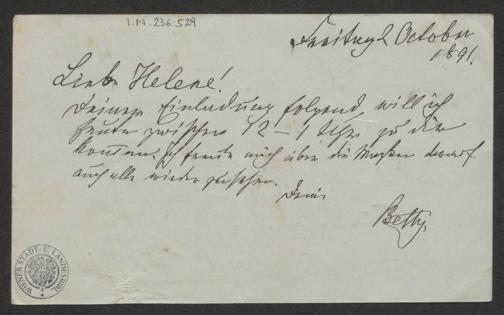 I.N. 236.529
Freitag 2 October
1891.
Liebe Helene!
Deiner Einladung folgend, will ich
heute zwischen 12 – 1 Uhr zu dir
kommen. Ich freue mich über die
auch alle wieder zu sehen.
Deine
Betty.
WIENER STADT- U. LANDESBIBL.